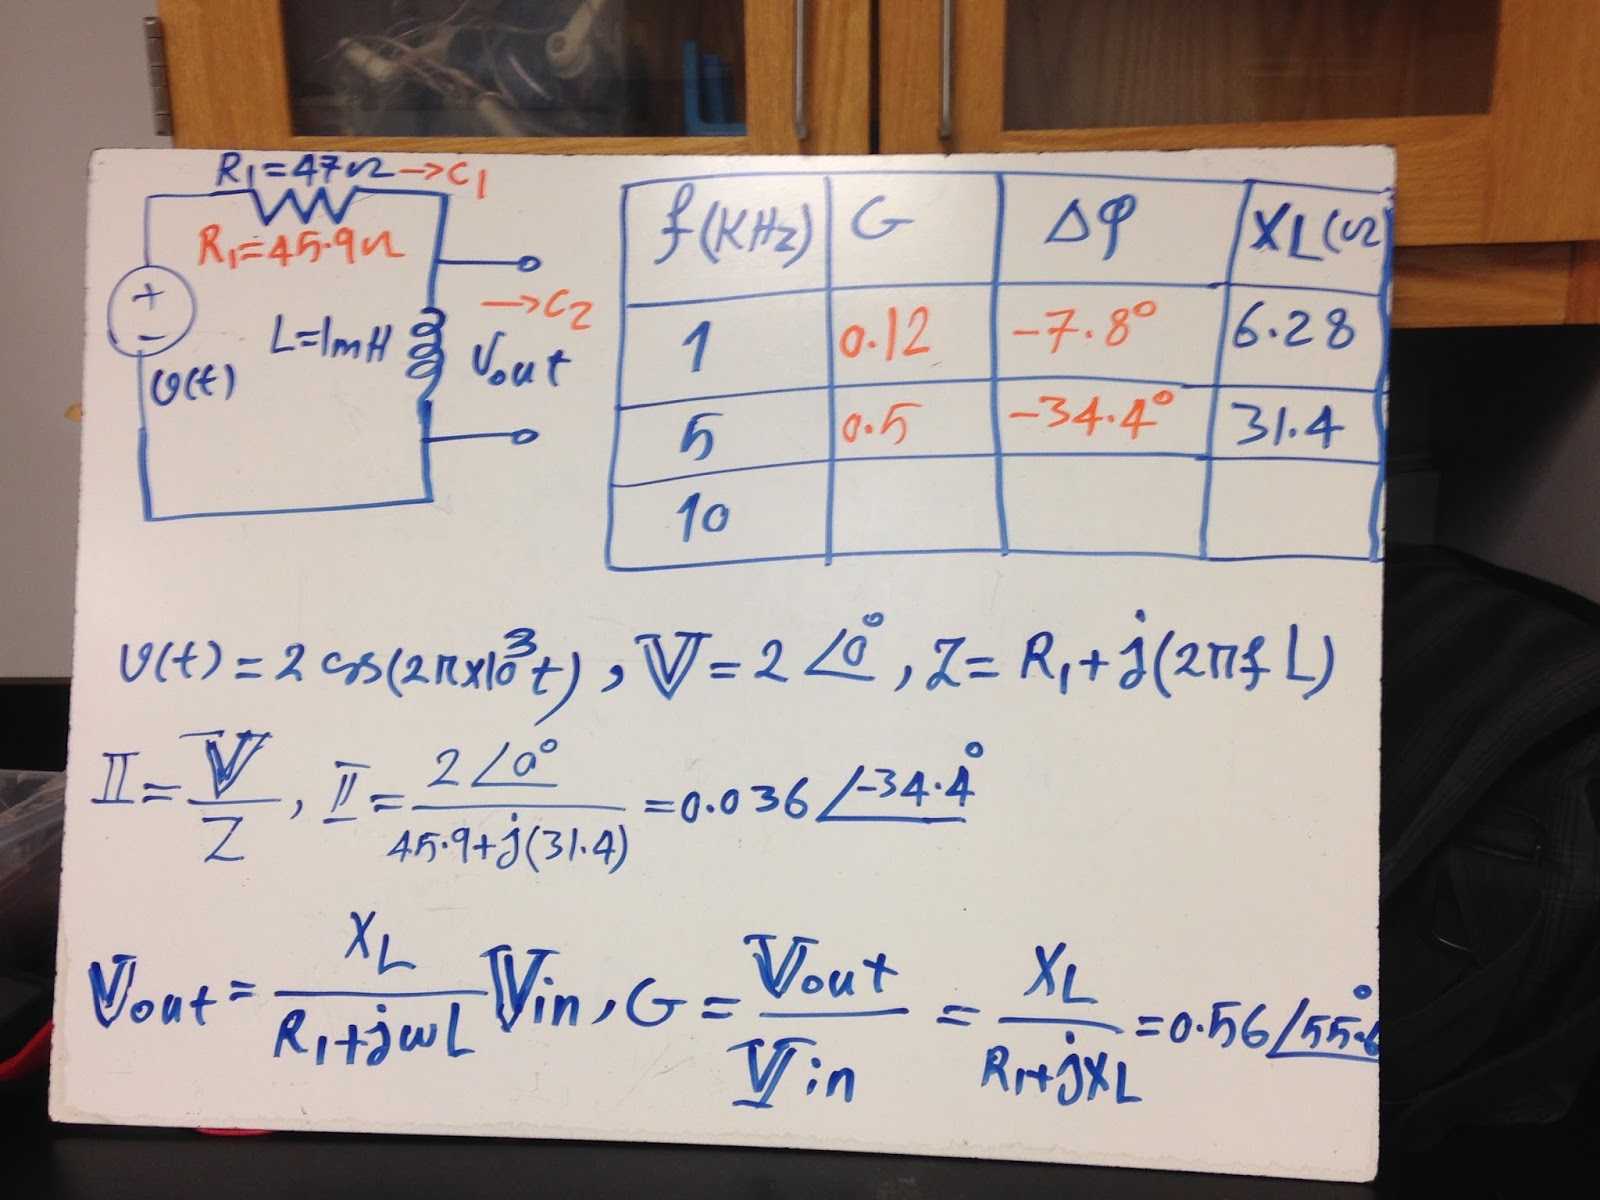 R1=47Ω →C1
R1=45.9Ω
+
-
→C2
L=1mH
Vout
υ(t)
f(KHz) G Δφ XL(Ω
1 0.12 -7.8° 6.28
5 0.5 -34.4° 31.4
10
υ(t)=2cos(2π×10³t), V=2∠0°, Z=R1+j(2πfL)
I=V/Z, I=2∠0°/45.9+j(31.4)=0.036∠-34.4°
Vout=XL/R1+jωL Vin, G=Vout/Vin=XL/R1+jXL=0.56∠55.6°